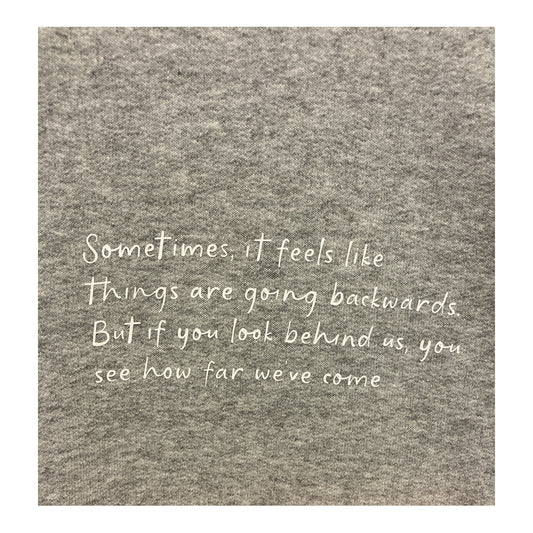 Sometimes, it feels like
things are going backwards.
But if you look behind us, you
see how far we've come.